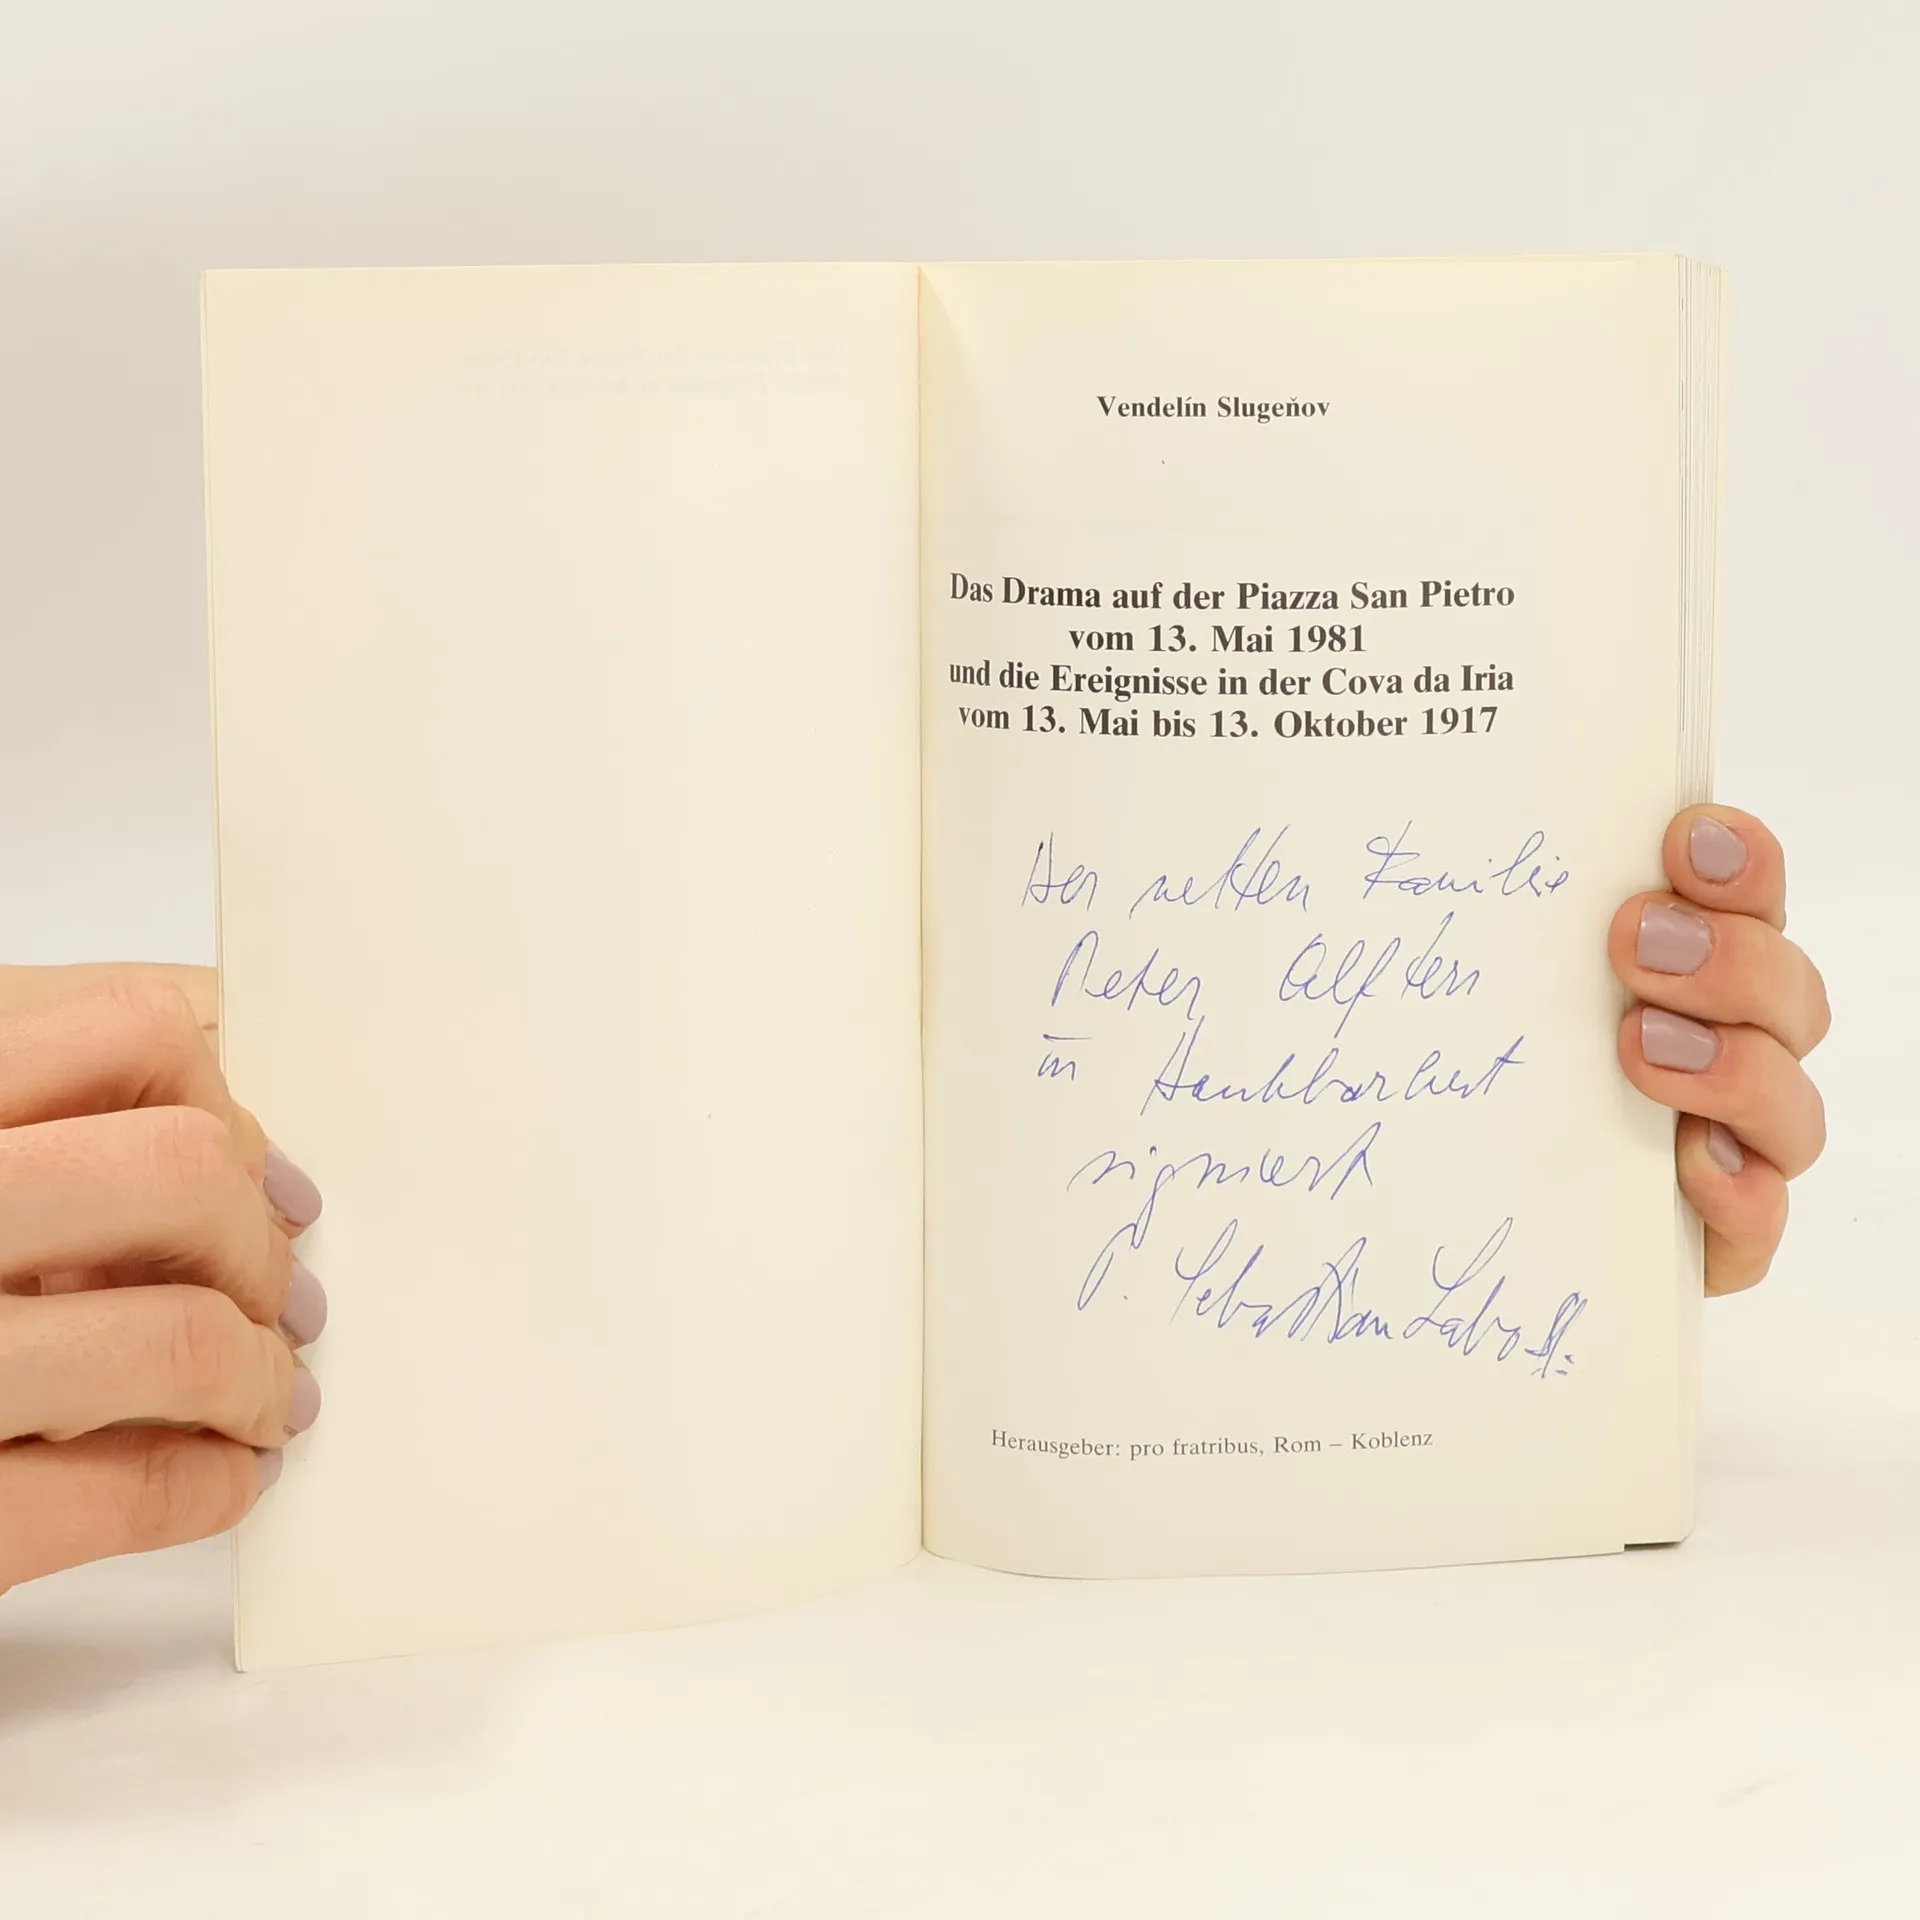 Vendelín Slugeňov
Das Drama auf der Piazza San Pietro
vom 13. Mai 1981
und die Ereignisse in der Cova da Iria
vom 13. Mai bis 13. Oktober 1917
Der netten Familie
Peter Alften
in Dankbarkeit
signiert
P. Sebastian Labo SJ.
Herausgeber: pro fratribus, Rom – Koblenz